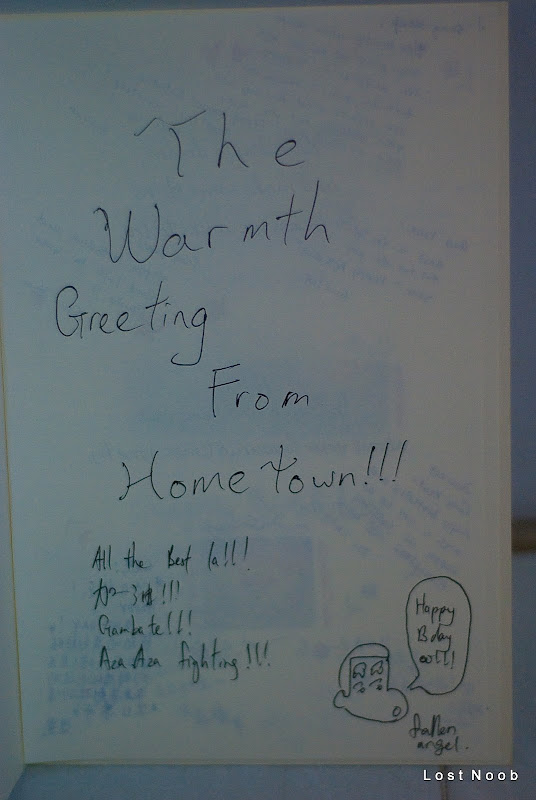 The
Warmth
Greeting
From
Home Town!!!
All the Best la!!!
加油!!!
Gambate!!!
Aza Aza fighting!!!
Happy
B'day
fallen
angel.
Lost Noob